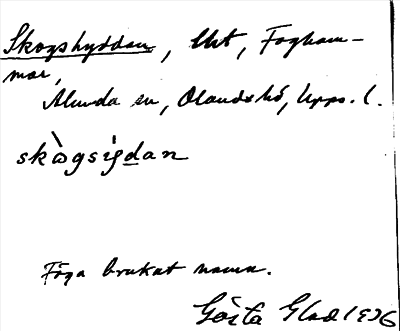 Skogshyddan, lht, Fogham-
mar,
Alunda sn, Olands hd, Upps. l.
skògsigdan
Föga brukat namn.
Gösta Glad 1936